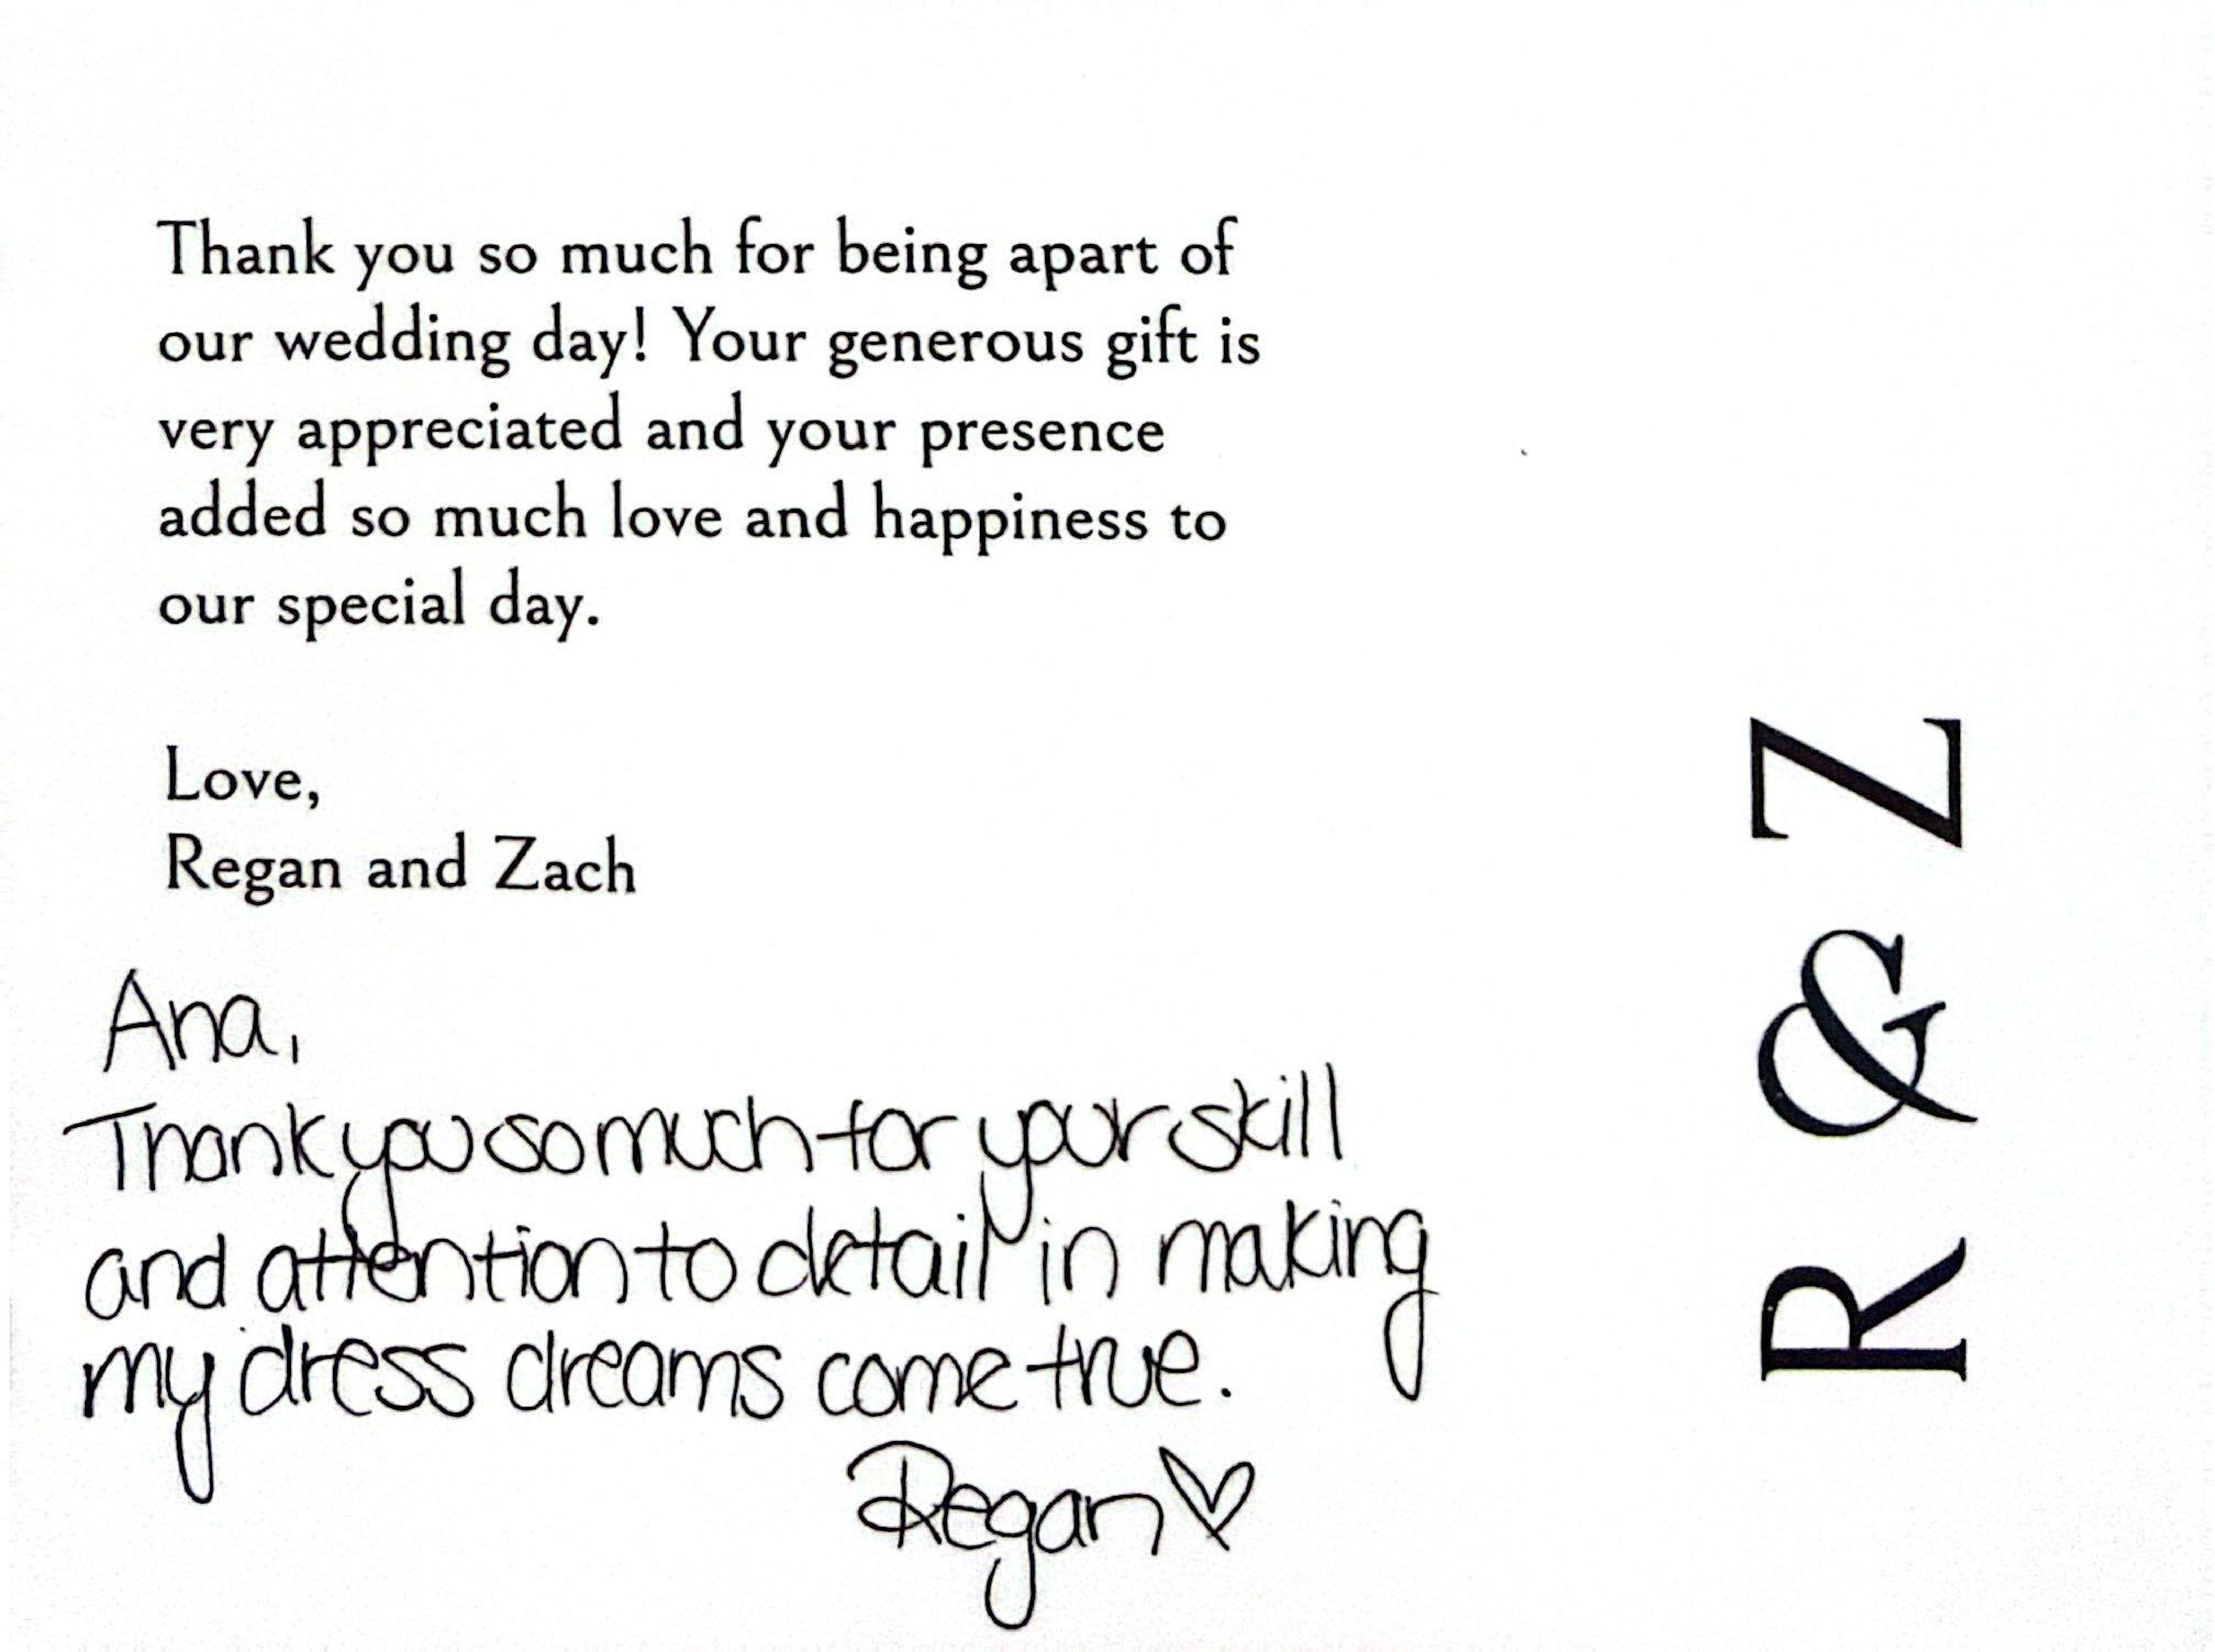 Thank you so much for being apart of
our wedding day! Your generous gift is
very appreciated and your presence
added so much love and happiness to
our special day.
Love,
Regan and Zach
Ana,
Thank you so much for your skill
and attention to detail in making
my dress dreams come true.
Regan♡
R & Z